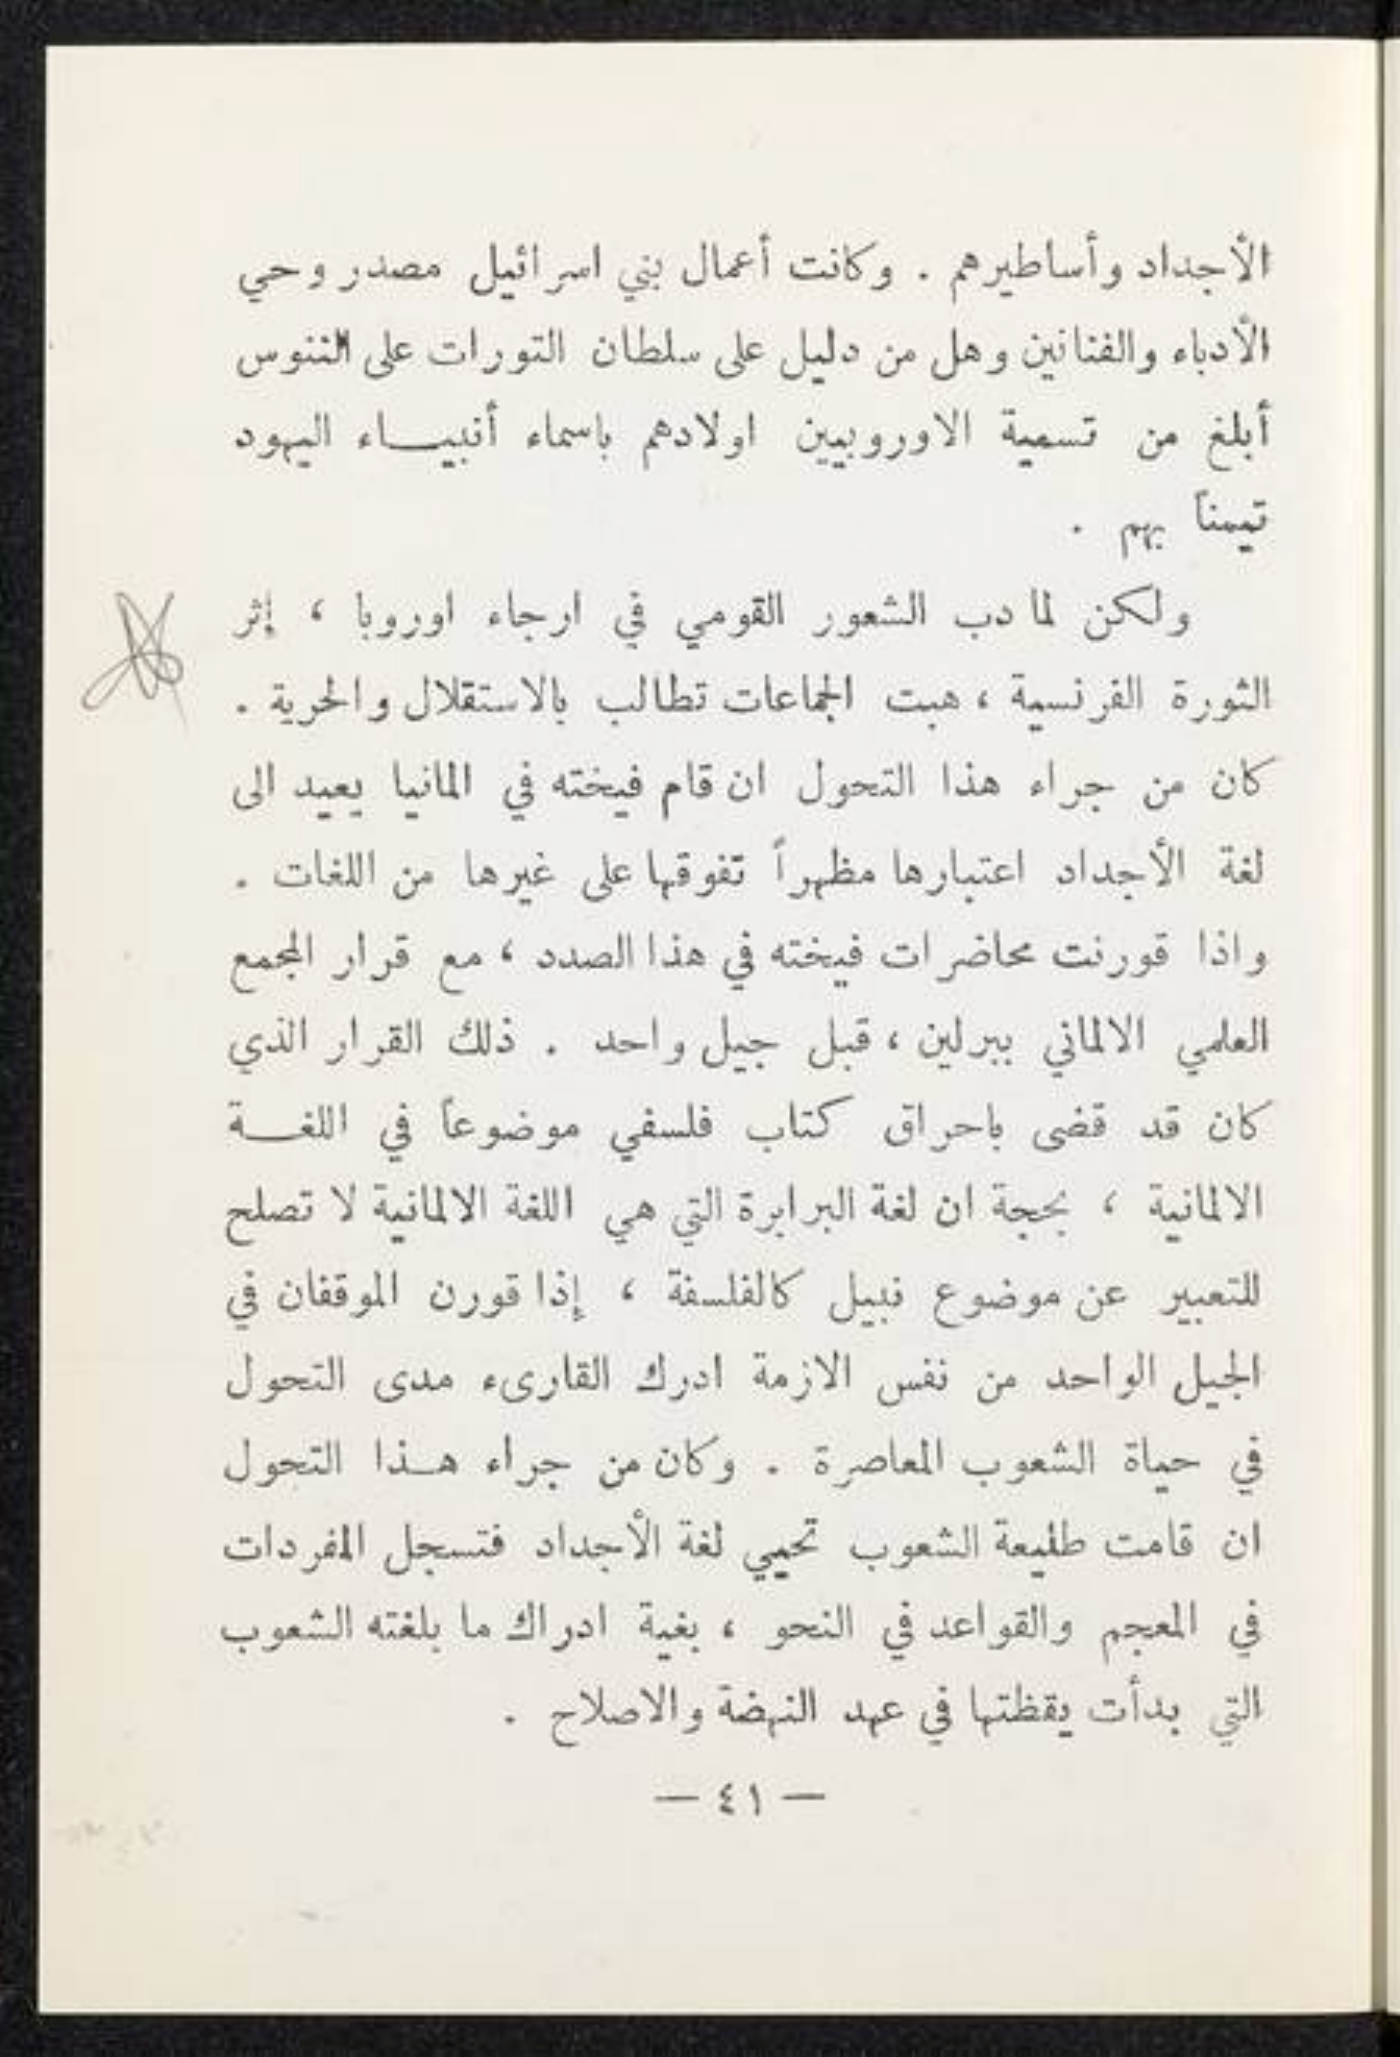 الأجداد وأساطيرهم . وكانت أعمال بني اسرائيل مصدر وحي
الأدباء والفنانين وهل من دليل على سلطان التورات على الننوس
أبلغ من تسمية الاوروبيين اولادهم باسماء أنبيـــاء اليهود
تيمناً بهم .
ولكن لما دب الشعور القومي في ارجاء اوروبا ، إثر
الثورة الفرنسية ، هبت الجماعات تطالب بالاستقلال والحرية .
كان من جراء هذا التحول ان قام فيخته في المانيا يعيد الى
لغة الأجداد اعتبارها مظهراً تفوقها على غيرها من اللغات .
واذا قورنت محاضرات فيخته في هذا الصدد ، مع قرار المجمع
العلمي الالماني ببرلين ، قبل جيل واحد . ذلك القرار الذي
كان قد قضى باحراق كتاب فلسفي موضوعاً في اللغـــة
الالمانية ، بحجة ان لغة البرابرة التي هي اللغة الالمانية لا تصلح
للتعبير عن موضوع نبيل كالفلسفة ، إذا قورن الموقفان في
الجيل الواحد من نفس الازمة ادرك القارىء مدى التحول
في حياة الشعوب المعاصرة . وكان من جراء هــذا التحول
ان قامت طليعة الشعوب تحيي لغة الأجداد فتسجل المفردات
في المعجم والقواعد في النحو ، بغية ادراك ما بلغته الشعوب
التي بدأت يقظتها في عهد النهضة والاصلاح .
— ٤١ —